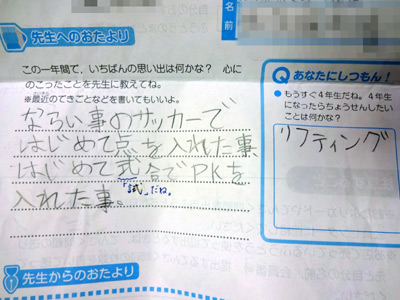 名前
先生へのおたより
この一年間で、いちばんの思い出は何かな? 心に
のこったことを先生に教えてね。
※最近のできごとなどを書いてもいいよ。
ならい事のサッカーで
はじめて点を入れた事、
はじめて式合でPKを
「試」だね。
入れた事。
Q あなたにしつもん!
● もうすぐ4年生だね。4年生
になったらちょうせんしたい
ことは何かな?
リフティング
先生からのおたより